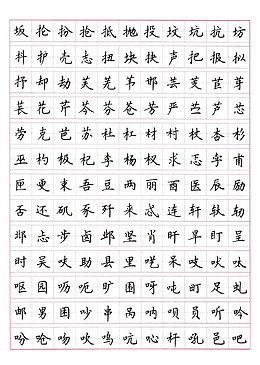 坂抡扮抢抵抛投坟坑抗坊
抖护壳志扭块抉声把报拟
抒却劫芙芜苇邯芸芰苣芽
苌花芹芩芬苍芳严苎芦芯
劳克芭苏杜杠材村杖杏杉
巫杓极杞李杨杈求忑孛甫
匣更束吾豆两丽酉医辰励
否还矶豕歼来忒连轩轪轫
邶忐步卤邺坚肖旰旱盯呈
时吴呋助县里呓呆吱吠呔
呕园呖呃旷围呀吨町足虬
邮男困吵串呙呐呗员听吟
吩呛吻吹呜吭吣吲吼邑吧